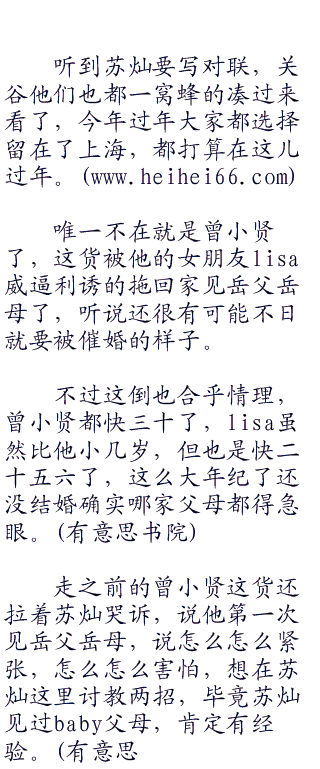 听到苏灿要写对联，关
谷他们也都一窝蜂的凑过来
看了，今年过年大家都选择
留在了上海，都打算在这儿
过年。(www.heihei66.com)
唯一不在就是曾小贤
了，这货被他的女朋友lisa
威逼利诱的拖回家见岳父岳
母了，听说还很有可能不日
就要被催婚的样子。
不过这倒也合乎情理，
曾小贤都快三十了，lisa虽
然比他小几岁，但也是快二
十五六了，这么大年纪了还
没结婚确实哪家父母都得急
眼。(有意思书院)
走之前的曾小贤这货还
拉着苏灿哭诉，说他第一次
见岳父岳母，说怎么怎么紧
张，怎么怎么害怕，想在苏
灿这里讨教两招，毕竟苏灿
见过baby父母，肯定有经
验。(有意思